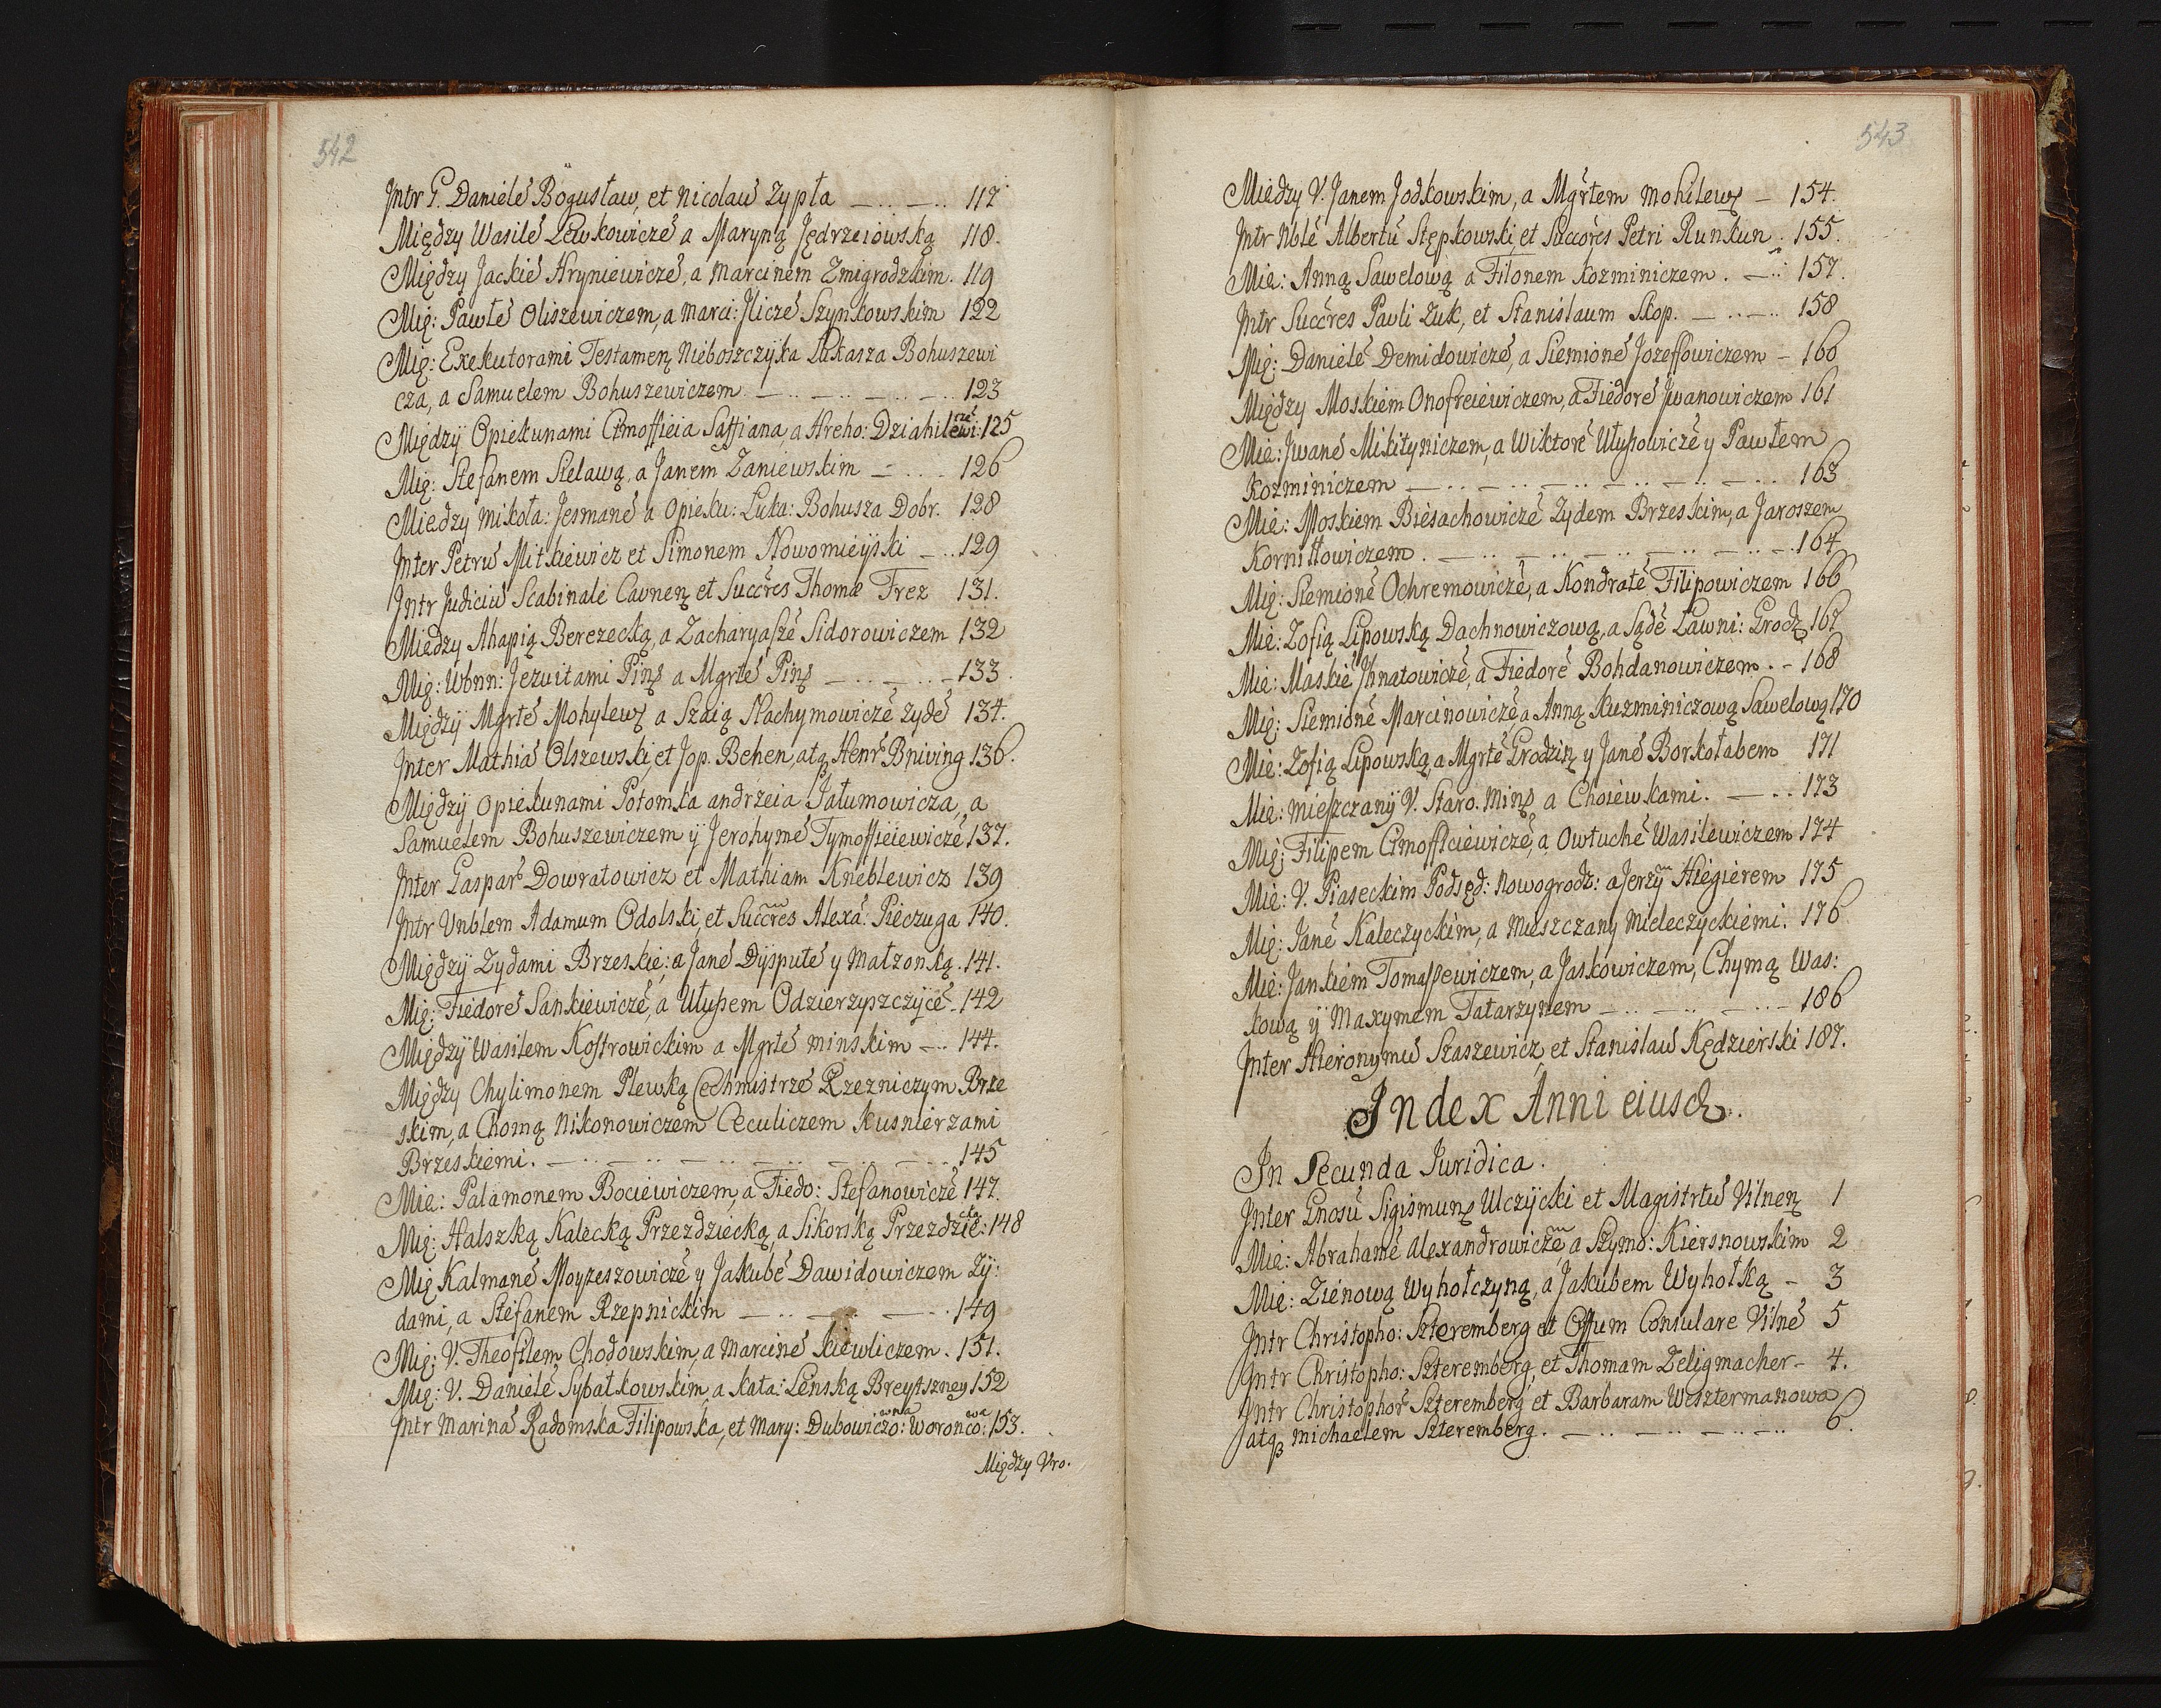 542
Intr G. Daniele Bogusław, et Nicolaū Zypła — .. — .. 117
Między Wasilē Lewkowiczē a Maryną Jędrzeiowską 118.
Między Jackiē Hryniewiczē, a Marcinem Zmigrodzkim. 119
Mię: Pawłē Oliszewiczem, a Marci: Iliczē Szynkowskim 122
Mię: Exekutorami Testamen Nieboszczyka Łukasza Bohuszewi
cza, a Samuelem Bohuszewiczem — .. — .. — .. — .. 123
Między Opiekunami Cimoffieia Saffiana, a Hreho: Dziahilewi:czē 125
Mię: Stefanem Sielawą, a Janem Zaniewskim — .. 126
Miedzy Mikoła: Jesmanē a Opieku: Łuka: Bohusza Dobr. 128
Inter Petrū Mitkiewicz et Simonem Nowomieyski — .. 129
Intr Judiciū Scabinale Caunen et Succr̄es Thomæ Frez 131.
Miedzy Ahapią Berezecką, a Zacharyaszē Sidorowiczem 132
Mię: Wbnn: Jezuitami Pins a Mgrtē Pins — .. — .. — 133.
Między Mgrtē Mohylews a Szaią Nachymowiczē Zydē 134.
Inter Mathiā Olszewski, et Jop. Behen, atq Henr Bniving 136.
Między Opiekunami Potomka andrzeia Jatumowicza, a
Samuelem Bohuszewiczem y Jerohymē Tymoffieiewiczē 137.
Inter Gaspar Dowratowicz et Mathiam Kneblewicz 139
Intr Vnblem Adamum Odolski, et Succr̄es Alexā: Pieczuga 140.
Między Zydami Brzeskie: a Janē Dysputē y Małzonką. 141.
Mię: Fiedorē Sankiewiczē, a Ułyssem Odzierzyszczycē 142
Między Wasilem Kostrowickim a Mgrtē minskim — .. 144.
Między Chylimonem Plewką Cechmistrzē Rzezniczym Brze
skim, a Chomą Nikonowiczem Ceculiczem Kusnierzami
Brzeskiemi. — .. — .. — .. — .. — .. 145
Mie: Palamonem Bociewiczem, a Fiedo: Stefanowiczē 147.
Mię: Halszką Kalecką Przezdziecką, a Sikorską Przezdzie:cką 148
Mię Kalmanē Moyzeszowiczē y Jakubē Dawidowiczem Zy:
dami, a Stefanem Rzepnickim — .. — .. — .. 149
Mię: V. Theofilem Chodowskim, a Marcinē Kiewliczem. 151.
Mię: V. Danielē Sybałkowskim, a Kata: Lenską Breytszney 152
Intr Marinā Radomska Filipowska, et Mary: Dubowiczo:wna Woronco:wa 153.
Między Vro.
543
Miedzy V. Janem Jodkowskim, a Mgr̄tem Mohilews — 154.
Intr Nblē Albertū Stępkowski et Succor̄es Petri Runkun. 155.
Mie: Anną Sawelową a Filonem Kozminiczem. — .. 157.
Intr Succr̄es Pavli Zuk, et Stanislaum Skop. — .. — .. 158
Mię: Danielē Demidowiczē, a Siemionē Jozeffowiczem — 160
Między Moskiem Onofreiewiczem, a Fiedorē Iwanowiczem 161
Mie: Iwanē Mikityniczem, a Wiktorē Ułyssowiczē y Pawłem
Kozminiczem — .. — .. — .. — .. — .. — .. 163
Mie: Moskiem Biesachowiczē Zydem Brzeskim, a Jaroszem
Korniłłowiczem. — .. — .. — .. — .. — .. 164
Mię: Siemionē Ochremowiczē, a Kondratē Filipowiczem 166
Mie: Zofią Lipowską Dachnowiczową, a Sądē Ławni: Grodz 167
Mie: Maskiē Ihnatowiczē, a Fiedorē Bohdanowiczem. — 168
Mię: Siemionē Marcinowiczē a Anną Kuzminiczową Sawelową 170
Mie: Zofią Lipowską, a Mgrtē Grodzin y Janē Borkołabem 171
Mie: Mieszczany V. Staro. Mins a Choiewkami. — .. 173
Mię: Filipem Cimoffieiewiczē, a Owtuchē Wasilewiczem 174
Mie: V. Piaseckim Podsęd: Nowogrodz: a Jerzym Hiegierem 175
Mię: Janē Kaleczyckim, a Mieszczany Mieleczyckiemi. 176
Mie: Jankiem Tomassewiczem, a Jaskowiczem, Chymą Was:
kową y Maxymem Tatarzynem — .. — .. — .. — 186
Inter Hieronymū Szaszewicz, et Stanislaū Kędzierski 187.
Index Anni eiusd.
In Secunda Iuridica.
Inter Gnosū Sigismuns Ulczycki et Magistrtū Vilnen 1
Mie: Abrahamē Alexandrowiczē a Szymo: Kiersnowskim 2
Mie: Zienową Wyhołczyną, a Jakubem Wyhołką — 3
Intr Christopho: Szteremberg et Offum Consulare Vilnē 5
Intr Christopho: Szteremberg, et Thomam Zeligmacher — 4.
Intr Christophor Szteremberg et Barbaram Wesztermanowa
atq Michaelem Szteremberg. — .. — .. — .. 6.